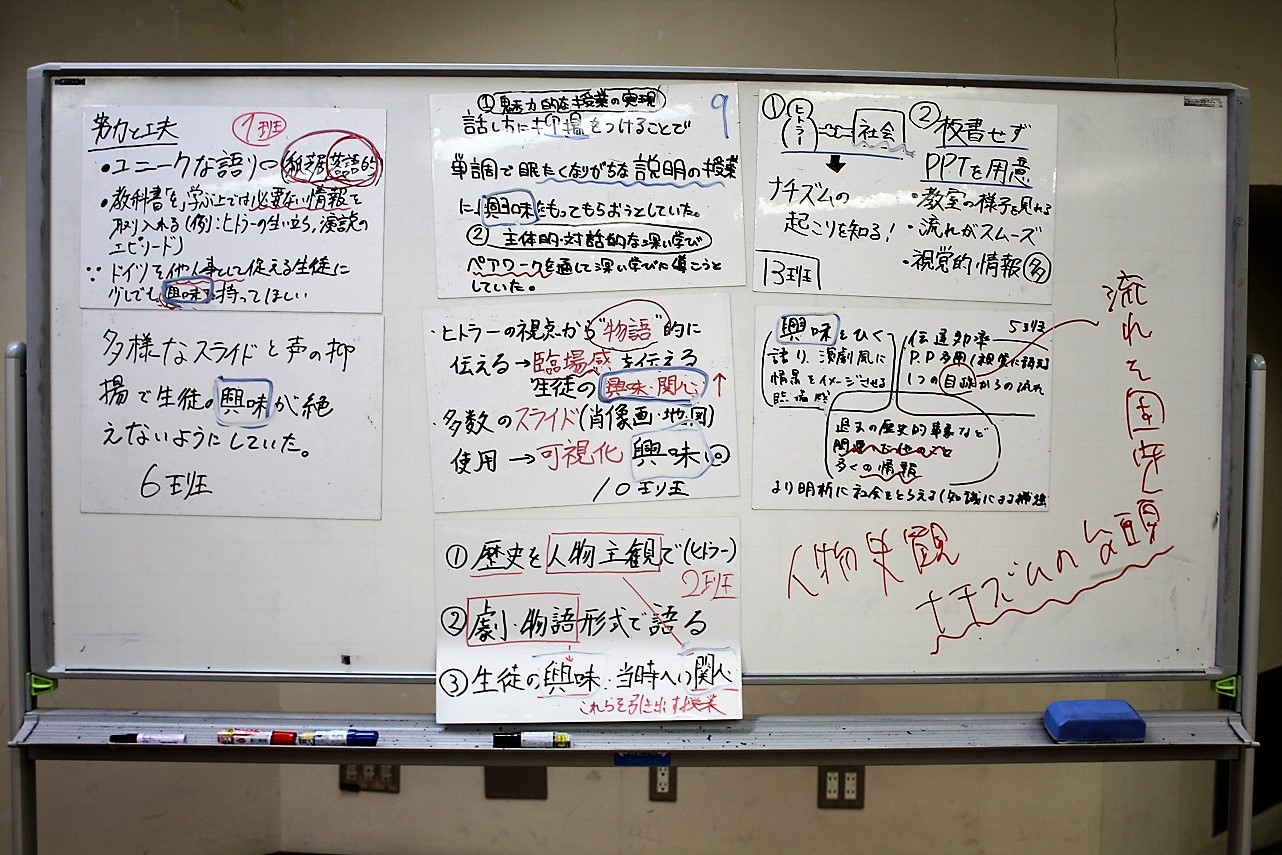 努力と工夫
1班
・ユニークな語り口 紙芝居 英語的
・教科書を学ぶ上では必要ない情報を
取り入れる(例:ヒトラーの生い立ち,演説の
エピソード)
∵ドイツを他人事として捉える生徒に
少しでも興味を持ってほしい
多様なスライドと声の抑
揚で生徒の興味が絶
えないようにしていた。
6班
①魅力的な授業の実現
9
話し方に抑揚をつけることで
単調で眠たくなりがちな説明の授業
に興味をもってもらおうとしていた。
②主体的・対話的な深い学び
ペアワークを通して深い学びに導こうと
していた。
・ヒトラーの視点から"物語"的に
伝える→臨場感を伝える
生徒の興味・関心↑
・多数のスライド(肖像画・地図)
使用→可視化 興味
10班
①歴史を人物主観で(ヒトラー)
2班
②劇・物語形式で語る
③生徒の興味・当時への関心
これらを引き出す授業
① ヒトラー 社会
ナチズムの
起こりを知る!
13班
②板書せず
PPTを用意
・教室の様子を見れる
・流れがスムーズ
・視覚的情報多
興味をひく
語り、演劇風に
情景をイメージさせる
臨場感
5班
伝達効率
P.P多用(視覚に訴え)
1つの目線からの流れ
過去の歴史的事象など
関連
多くの情報
より明析に社会をとらえる(知識による補強
流れを固定し
人物史観
ナチズムの台頭